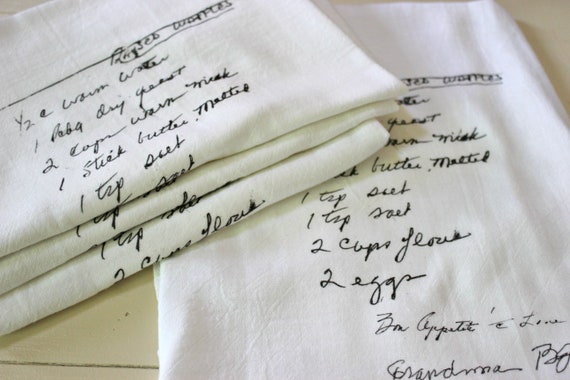 Raised Waffles
1/2 c warm water
1 pkg dry yeast
2 cups warm milk
1 stick butter, melted
1 tsp salt
1 tsp salt
1 tsp
2 cups flour
Raised Waffles
water
yeast
warm milk
butter, melted
1 tsp salt
1 tsp salt
2 cups flour
2 eggs
Bon Appetite & Love
Grandma